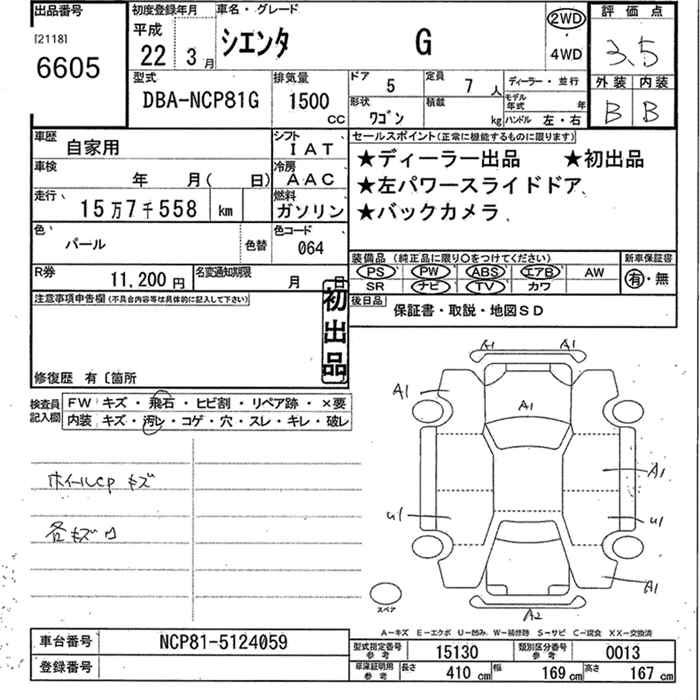 出品番号
[2118]
6605
初度登録年月
平成
22 3月
車名・グレード
シエンタ G
2WD
・
4WD
評価点
3.5
外装 内装
B B
型式
DBA-NCP81G
排気量
1500
CC
ドア 5
定員 7人
ディーラー・並行
形状 ワゴン
積載 kg
モデル年式 年
ハンドル 左・右
車歴
自家用
シフト
IAT
セールスポイント(正常に機能するものに限ります)
★ディーラー出品 ★初出品
★左パワースライドドア
★バックカメラ
車検
年 月( 日)
冷房
AAC
走行
15万7千558 km
燃料
ガソリン
色
パール
色替
色コード
064
装備品(純正品に限り○をつけてください)
PS PW ABS エアB AW
SR ナビ TV カワ
新車保証書
有・無
R券
11,200円
名変通知期限
月 日
後日品
保証書・取説・地図SD
注意事項申告欄(不具合内容等は具体的に記入して下さい)
初出品
修復歴 有〔箇所
検査員
記入欄
FW キズ・飛石・ヒビ割・リペア跡・×要
内装 キズ・汚レ・コゲ・穴・スレ・キレ・破レ
ホイールCP キズ
各キズロ
A1 A1
A1
A1
A1
U1 U1
A1
A2
スペア
A-キズ E-エクボ U-凹み W-補修跡 S-サビ C-腐食 XX-交換済
車台番号
NCP81-5124059
登録番号
型式指定番号
参考
15130
類別区分番号
参考
0013
車庫証明用
参考
長さ 410 cm
幅 169 cm
高さ 167 cm